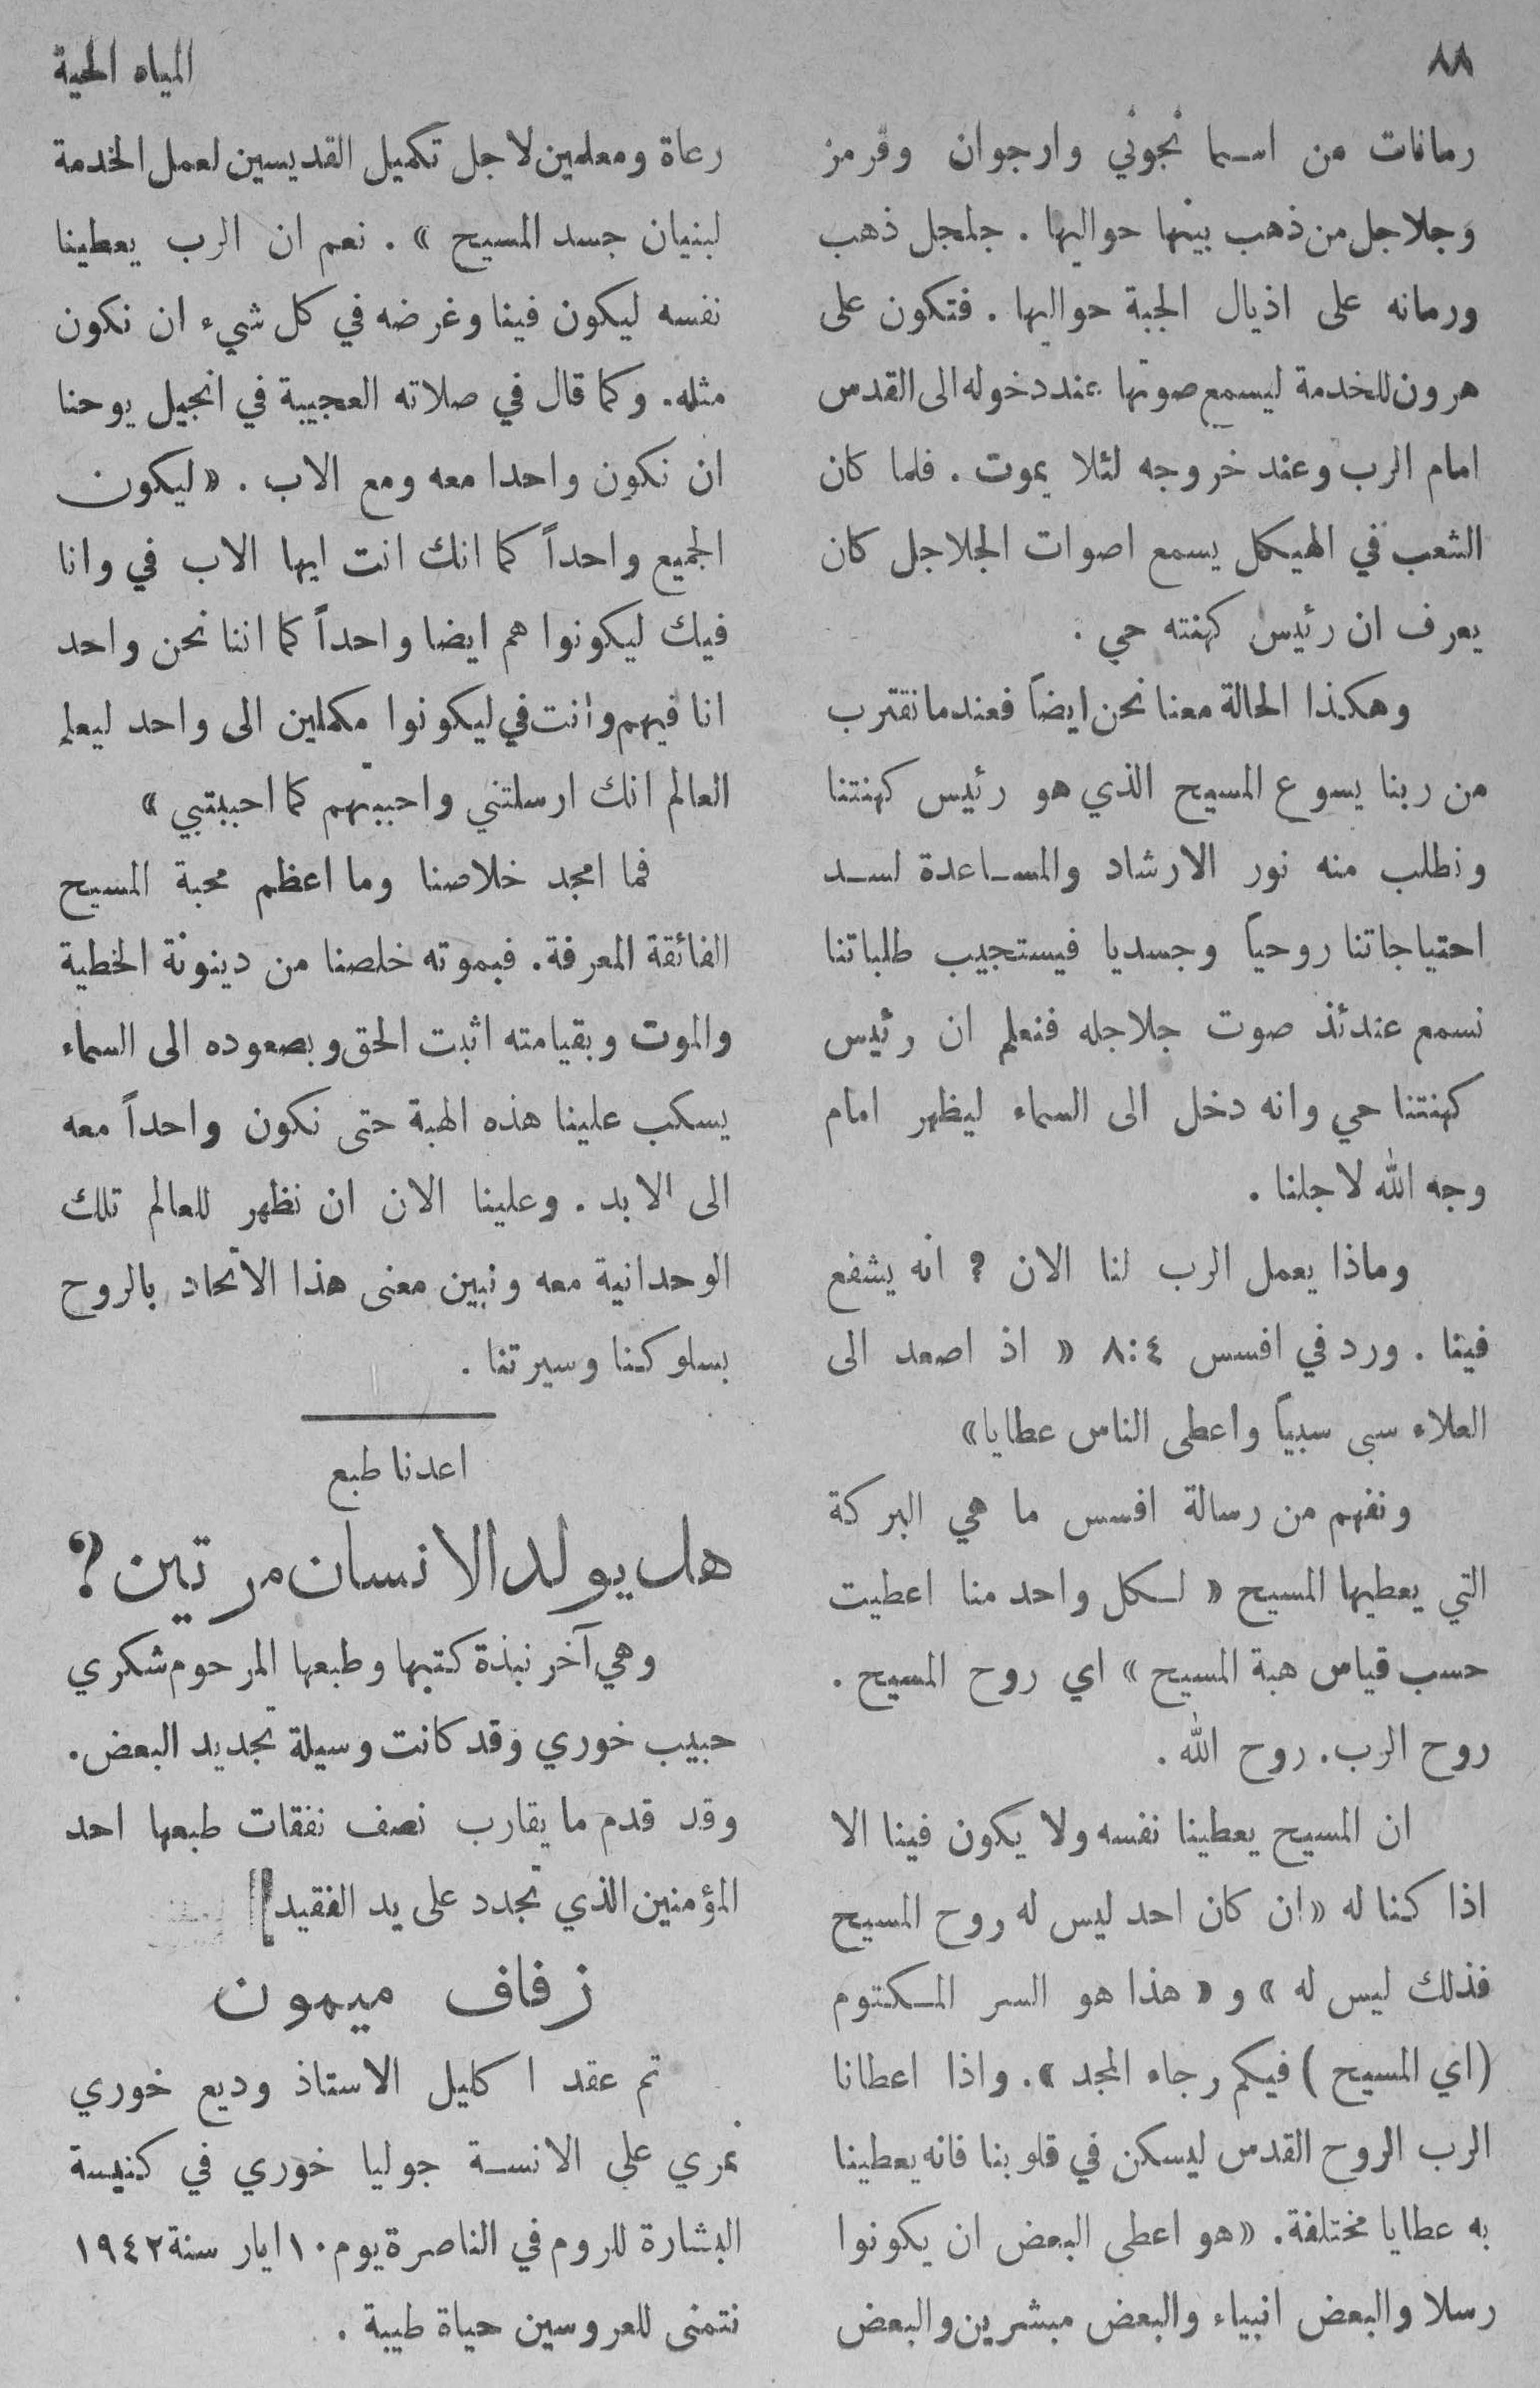 ٨٨
المياه الحية
رمانات من اسما نجوني وارجوان وقرمز
وجلاجل من ذهب بينها حواليها . جلجل ذهب
ورمانه على اذيال الجبة حواليها . فتكون على
هرون للخدمة ليسمع صوتها عند دخوله الى القدس
امام الرب وعند خروجه لئلا يموت . فلما كان
الشعب في الهيكل يسمع اصوات الجلاجل كان
يعرف ان رئيس كهنته حي .
وهكذا الحالة معنا نحن ايضاً فعندما نقترب
من ربنا يسوع المسيح الذي هو رئيس كهنتنا
ونطلب منه نور الارشاد والمساعدة لسد
احتياجاتنا روحياً وجسديا فيستجيب طلباتنا
نسمع عندئذ صوت جلاجله فنعلم ان رئيس
كهنتنا حي وانه دخل الى السماء ليظهر امام
وجه الله لاجلنا .
وماذا يعمل الرب لنا الان ؟ انه يشفع
فينا . ورد في افسس ٨:٤ « اذ اصعد الى
العلاء سبى سبياً واعطى الناس عطايا»
ونفهم من رسالة افسس ما هي البركة
التي يعطيها المسيح « لكل واحد منا اعطيت
حسب قياس هبة المسيح » اي روح المسيح .
روح الرب. روح الله .
ان المسيح يعطينا نفسه ولا يكون فينا الا
اذا كنا له «ان كان احد ليس له روح المسيح
فذلك ليس له » و « هذا هو السر المكتوم
(اي المسيح ) فيكم رجاء المجد ». واذا اعطانا
الرب الروح القدس ليسكن في قلوبنا فانه يعطينا
به عطايا مختلفة. «هو اعطى البعض ان يكونوا
رسلا والبعض انبياء والبعض مبشرين والبعض
رعاة ومعلمين لاجل تكميل القديسين لعمل الخدمة
لبنيان جسد المسيح » . نعم ان الرب يعطينا
نفسه ليكون فينا وغرضه في كل شيء ان نكون
مثله. وكما قال في صلاته العجيبة في انجيل يوحنا
ان نكون واحدا معه ومع الاب . «ليكون
الجميع واحداً كما انك انت ايها الاب في وانا
فيك ليكونوا هم ايضا واحداً كما اننا نحن واحد
انا فيهم وانت في ليكونوا مكملين الى واحد ليعلم
العالم انك ارسلتني واحببتهم كما احببتني »
فما امجد خلاصنا وما اعظم محبة المسيح
الفائقة المعرفة. فبموته خلصنا من دينونة الخطية
والموت وبقيامته اثبت الحق وبصعوده الى السماء
يسكب علينا هذه الهبة حتى نكون واحداً معه
الى الابد . وعلينا الان ان نظهر للعالم تلك
الوحدانية معه ونبين معنى هذا الاتحاد بالروح
بسلوكنا وسيرتنا .
اعدنا طبع
هل يولد الانسان مرتين ؟
وهي آخر نبذة كتبها وطبعها المرحوم شكري
حبيب خوري وقد كانت وسيلة تجديد البعض.
وقد قدم ما يقارب نصف نفقات طبعها احد
المؤمنين الذي تجدد على يد الفقيد
زفاف ميمون
تم عقد اكليل الاستاذ وديع خوري
نمري على الانسة جوليا خوري في كنيسة
البشارة للروم في الناصرة يوم ١٠ ايار سنة ١٩٤٢
نتمنى للعروسين حياة طيبة .